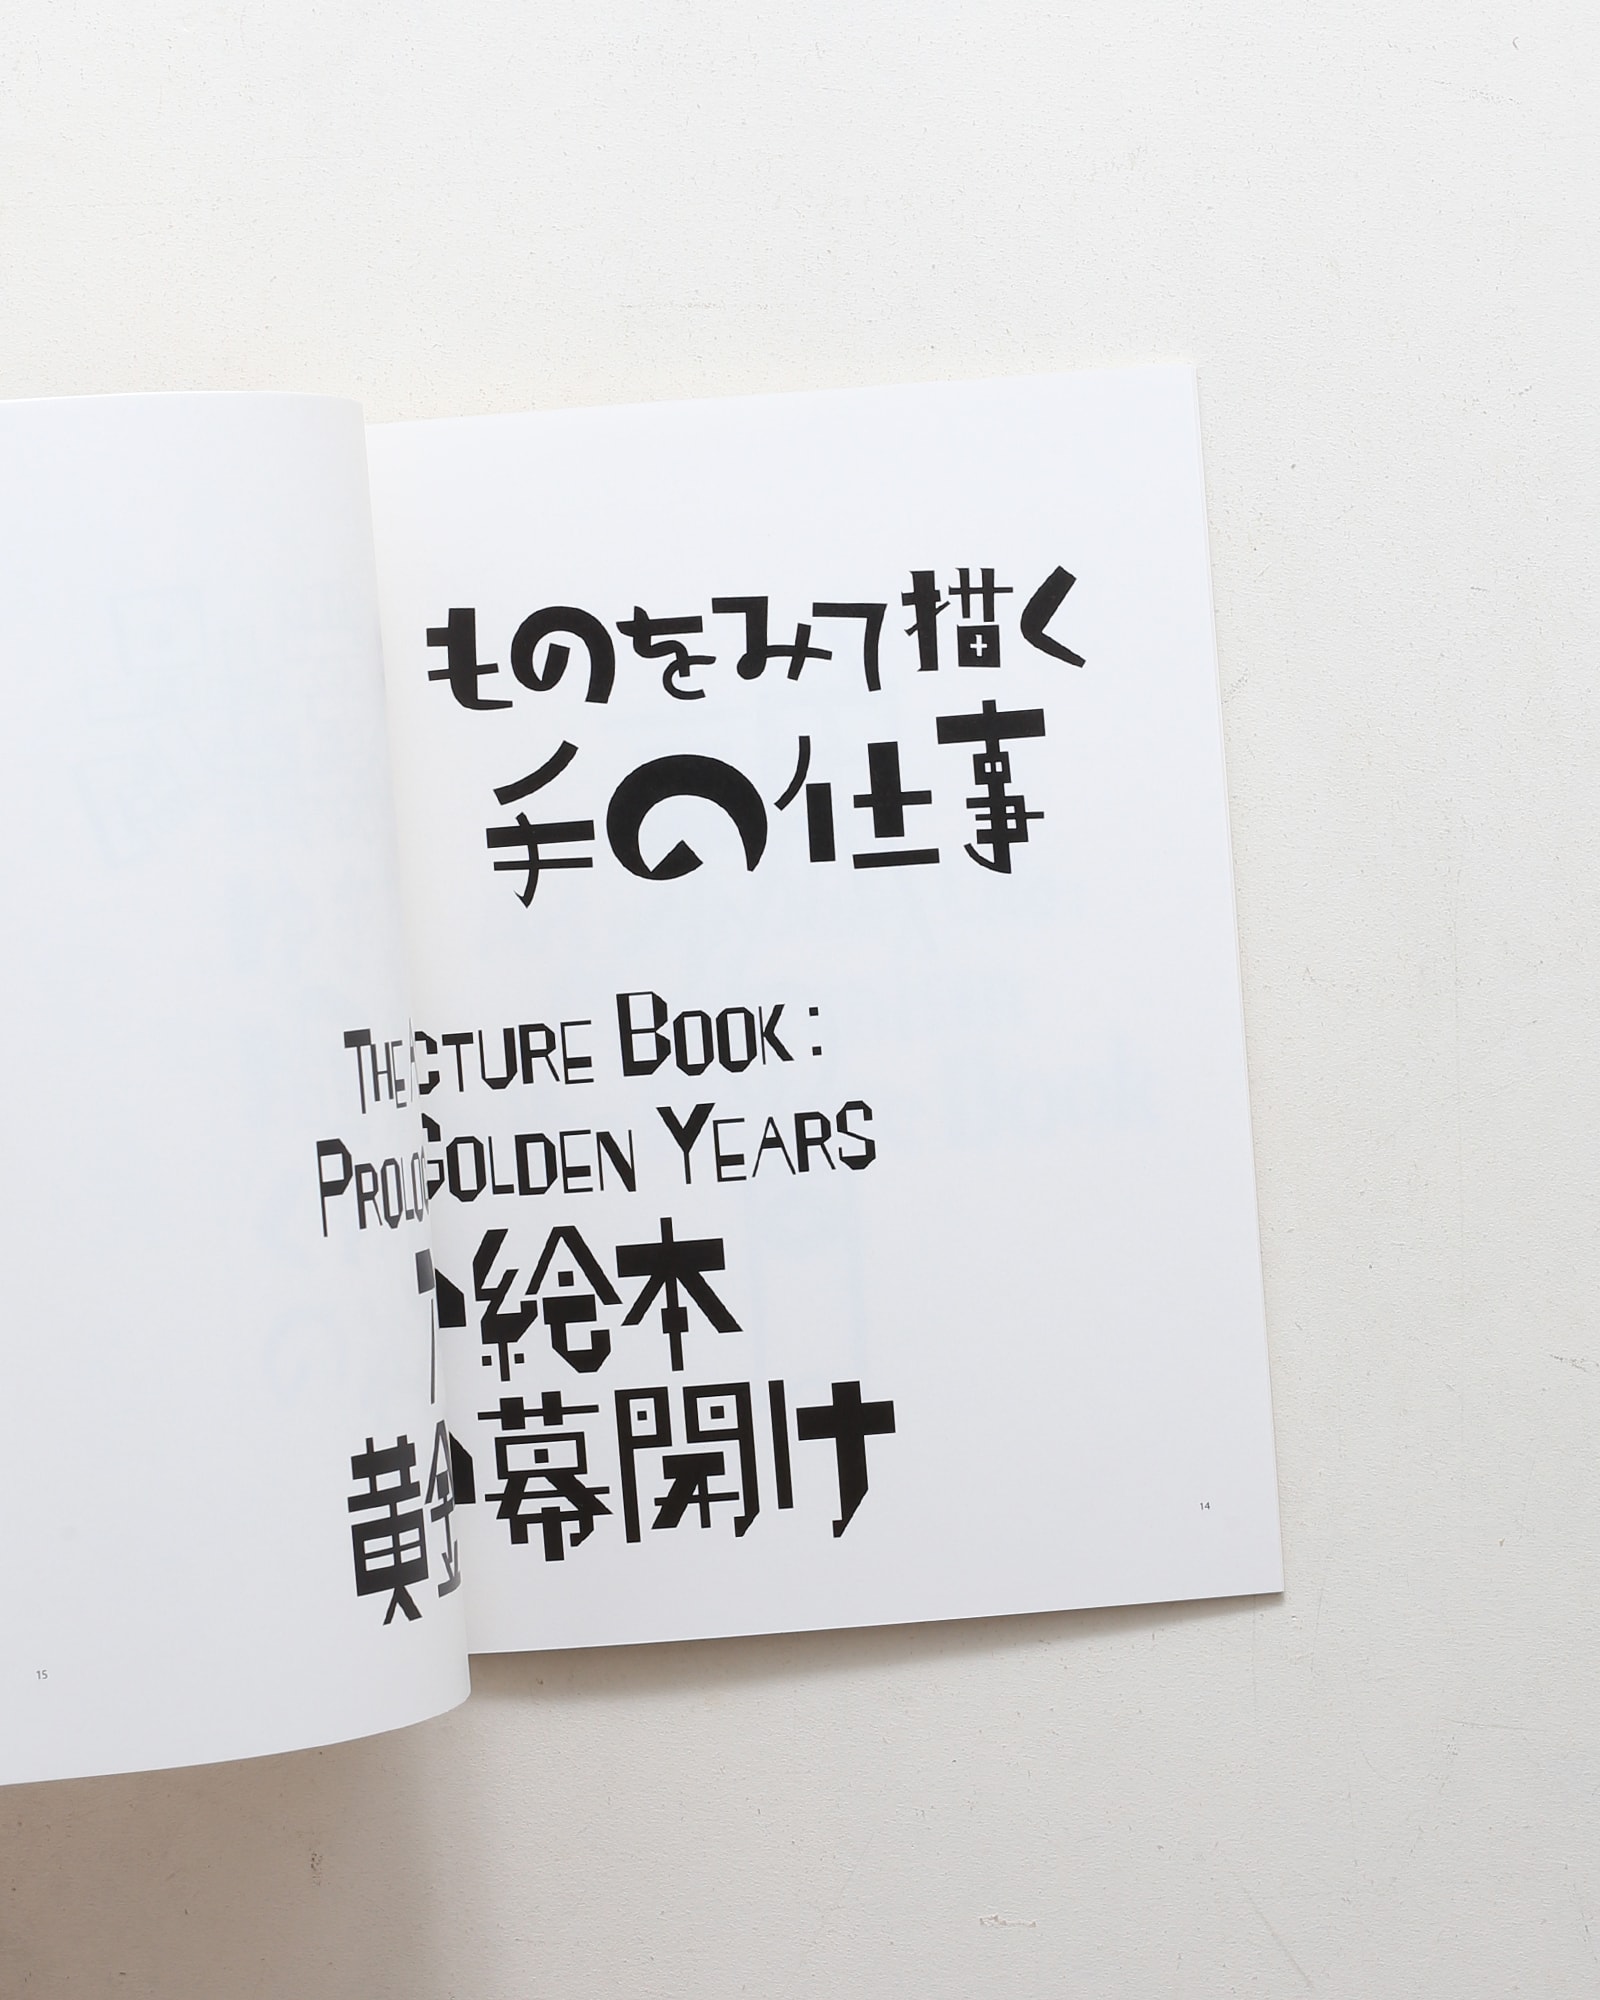 ものをみて描く
手の仕事
THE CTURE BOOK:
PROLO GOLDEN YEARS
絵本
黄金 幕開け
14
15